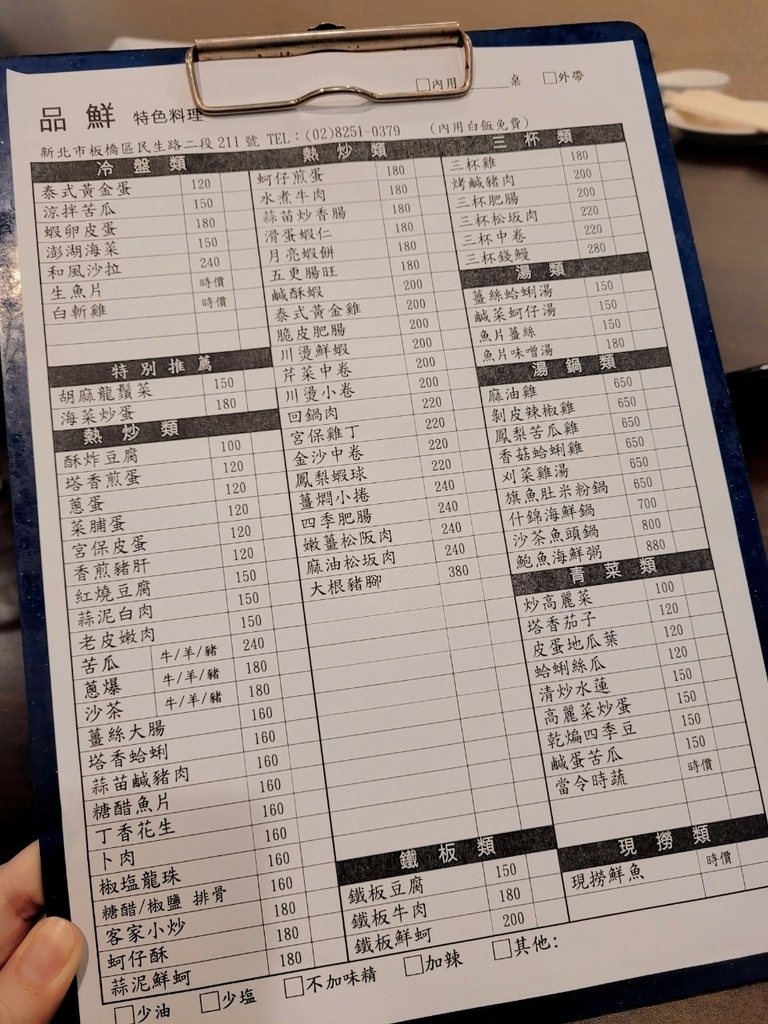 □內用____桌 □外帶
品鮮 特色料理
新北市板橋區民生路二段211號 TEL：(02)8251-0379 （內用白飯免費）
冷盤類
泰式黃金蛋 120
涼拌苦瓜 150
蝦卵皮蛋 180
澎湖海菜 150
和風沙拉 240
生魚片 時價
白斬雞 時價
特別推薦
胡麻龍鬚菜 150
海菜炒蛋 180
熱炒類
酥炸豆腐 100
塔香煎蛋 120
蔥蛋 120
菜脯蛋 120
宮保皮蛋 120
香煎豬肝 120
紅燒豆腐 150
蒜泥白肉 150
老皮嫩肉 150
苦瓜 牛/羊/豬 240
蔥爆 牛/羊/豬 180
沙茶 牛/羊/豬 180
薑絲大腸 160
塔香蛤蜊 160
蒜苗鹹豬肉 160
糖醋魚片 160
丁香花生 160
卜肉 160
椒塩龍珠 160
糖醋/椒鹽 排骨 160
客家小炒 180
蚵仔酥 180
蒜泥鮮蚵 180
熱炒類
蚵仔煎蛋 180
水煮牛肉 180
蒜苗炒香腸 180
滑蛋蝦仁 180
月亮蝦餅 180
五更腸旺 180
鹹酥蝦 200
泰式黃金雞 200
脆皮肥腸 200
川燙鮮蝦 200
芹菜中卷 200
川燙小卷 200
回鍋肉 220
宮保雞丁 220
金沙中卷 220
鳳梨蝦球 220
薑燜小捲 240
四季肥腸 240
嫩薑松阪肉 240
麻油松坂肉 240
大根豬腳 380
鐵板類
鐵板豆腐 150
鐵板牛肉 180
鐵板鮮蚵 200
三杯類
三杯雞 180
烤鹹豬肉 200
三杯肥腸 200
三杯松坂肉 220
三杯中卷 220
三杯錢鰻 280
湯類
薑絲蛤蜊湯 150
鹹菜蚵仔湯 150
魚片薑絲 150
魚片味噌湯 180
湯鍋類
麻油雞 650
剝皮辣椒雞 650
鳳梨苦瓜雞 650
香菇蛤蜊雞 650
刈菜雞湯 650
旗魚肚米粉鍋 650
什錦海鮮鍋 700
沙茶魚頭鍋 800
鮑魚海鮮粥 880
青菜類
炒高麗菜 100
塔香茄子 120
皮蛋地瓜葉 120
蛤蜊絲瓜 120
清炒水蓮 150
高麗菜炒蛋 150
乾煸四季豆 150
鹹蛋苦瓜 150
當令時蔬 時價
現撈類
現撈鮮魚 時價
□少油 □少塩 □不加味精 □加辣 □其他：